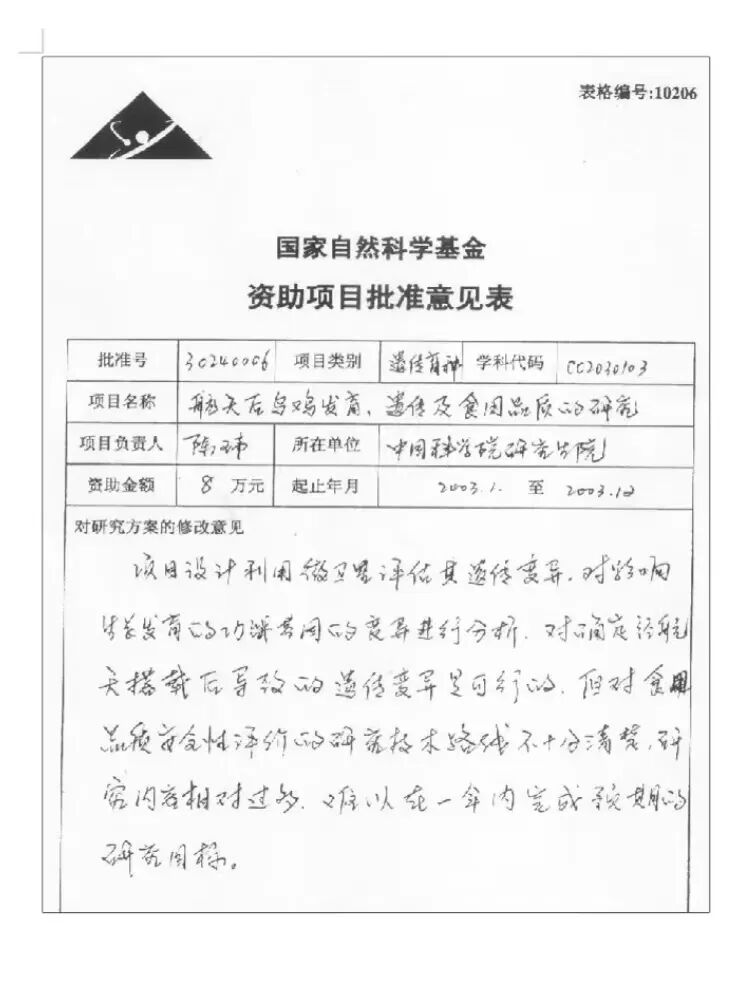 表格编号:10206
国家自然科学基金
资助项目批准意见表
批准号 30240006 项目类别 遗传育种 学科代码 CC2030103
项目名称 航天后乌鸡发育、遗传及食用品质的研究
项目负责人 陈玮 所在单位 中国科学院研究生院
资助金额 8 万元 起止年月 2003.1. 至 2003.12
对研究方案的修改意见
项目设计利用微卫星评估其遗传变异,对影响
生长发育的功能基因的变异进行分析,对确定经航
天搭载后导致的遗传变异是可行的,但对食用
品质安全性评价的研究技术路线不十分清楚,研
究内容相对过多,难以在一年内完成预期的
研究目标。